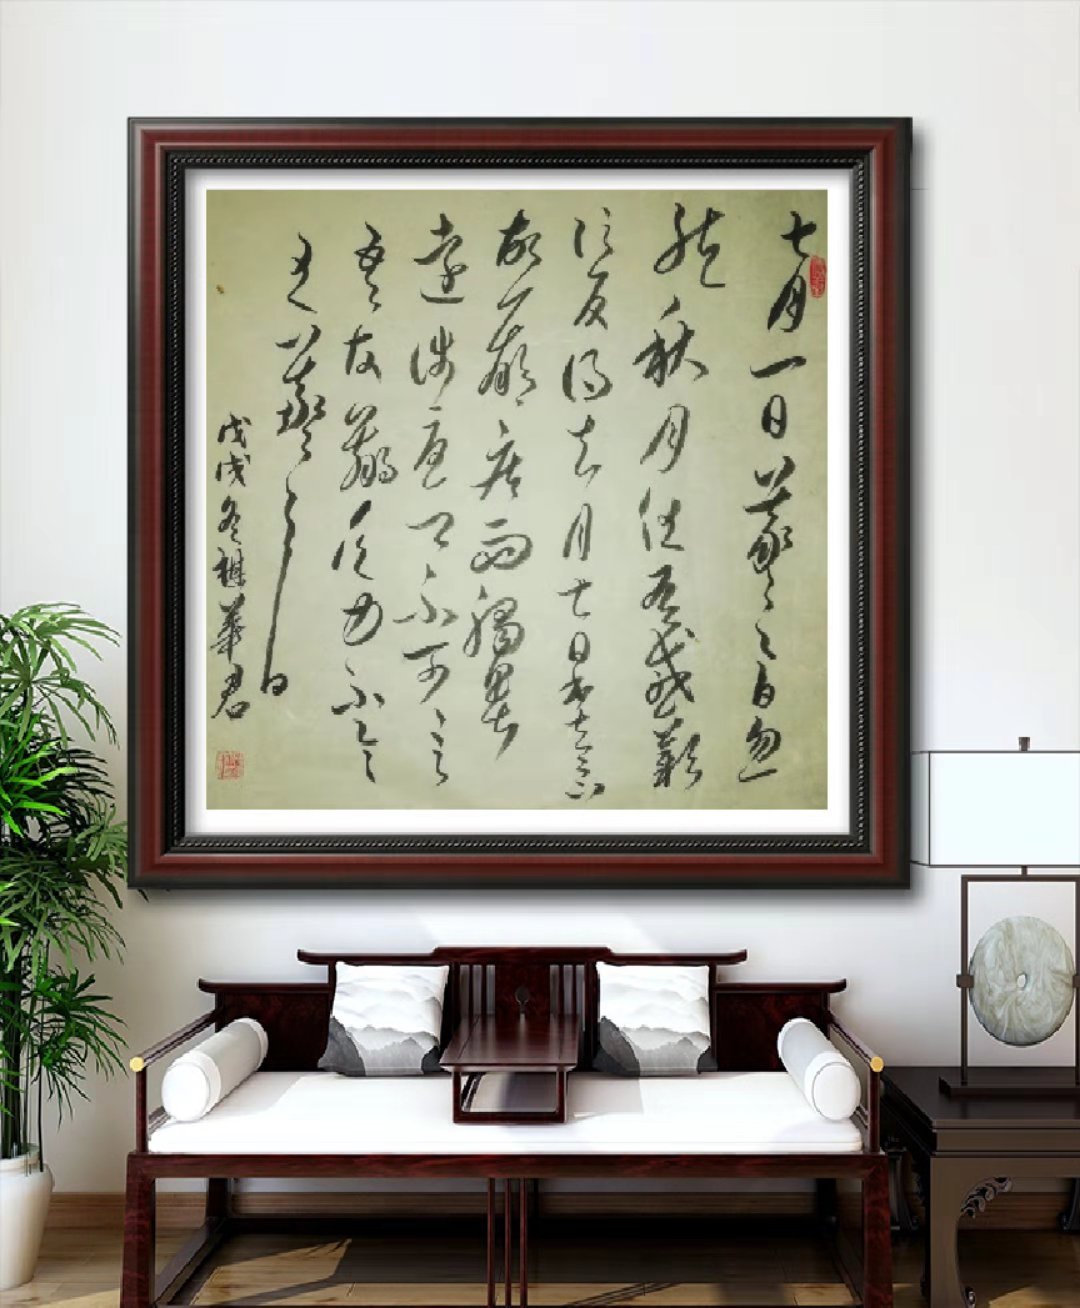 七月一日羲之白忽
然秋月但有感歎
信反得去月七日書知足下
故羸疾而觸暑
遠涉憂卿不可言
吾故羸乏力不
王羲之白
戊戌冬華君